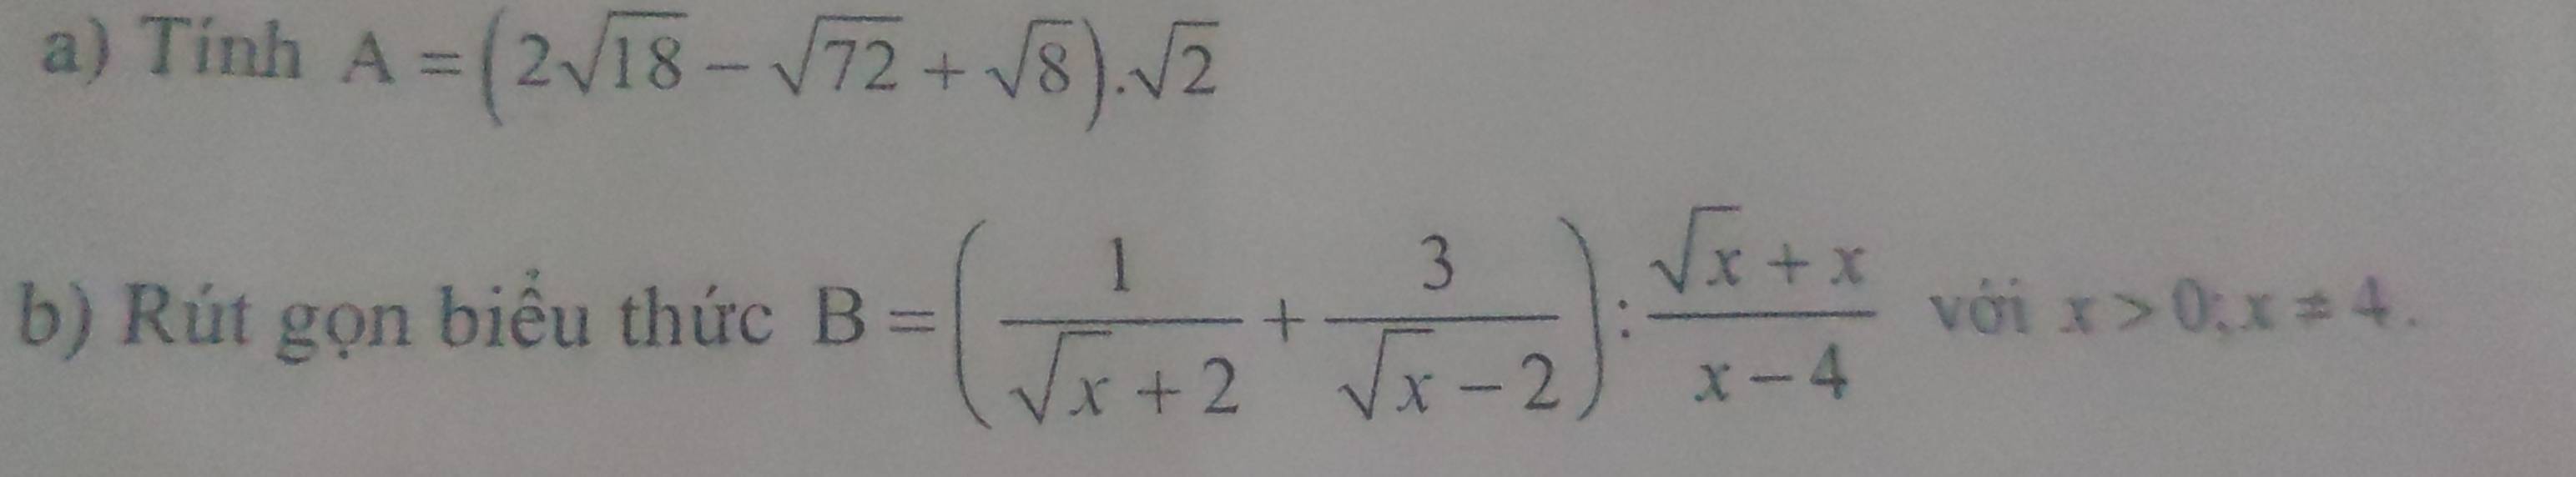 a) Tính A = (2√18 − √72 + √8).√2
b) Rút gọn biểu thức B = (1/(√x + 2) + 3/(√x − 2)) : (√x + x)/(x − 4) với x > 0; x ≠ 4.